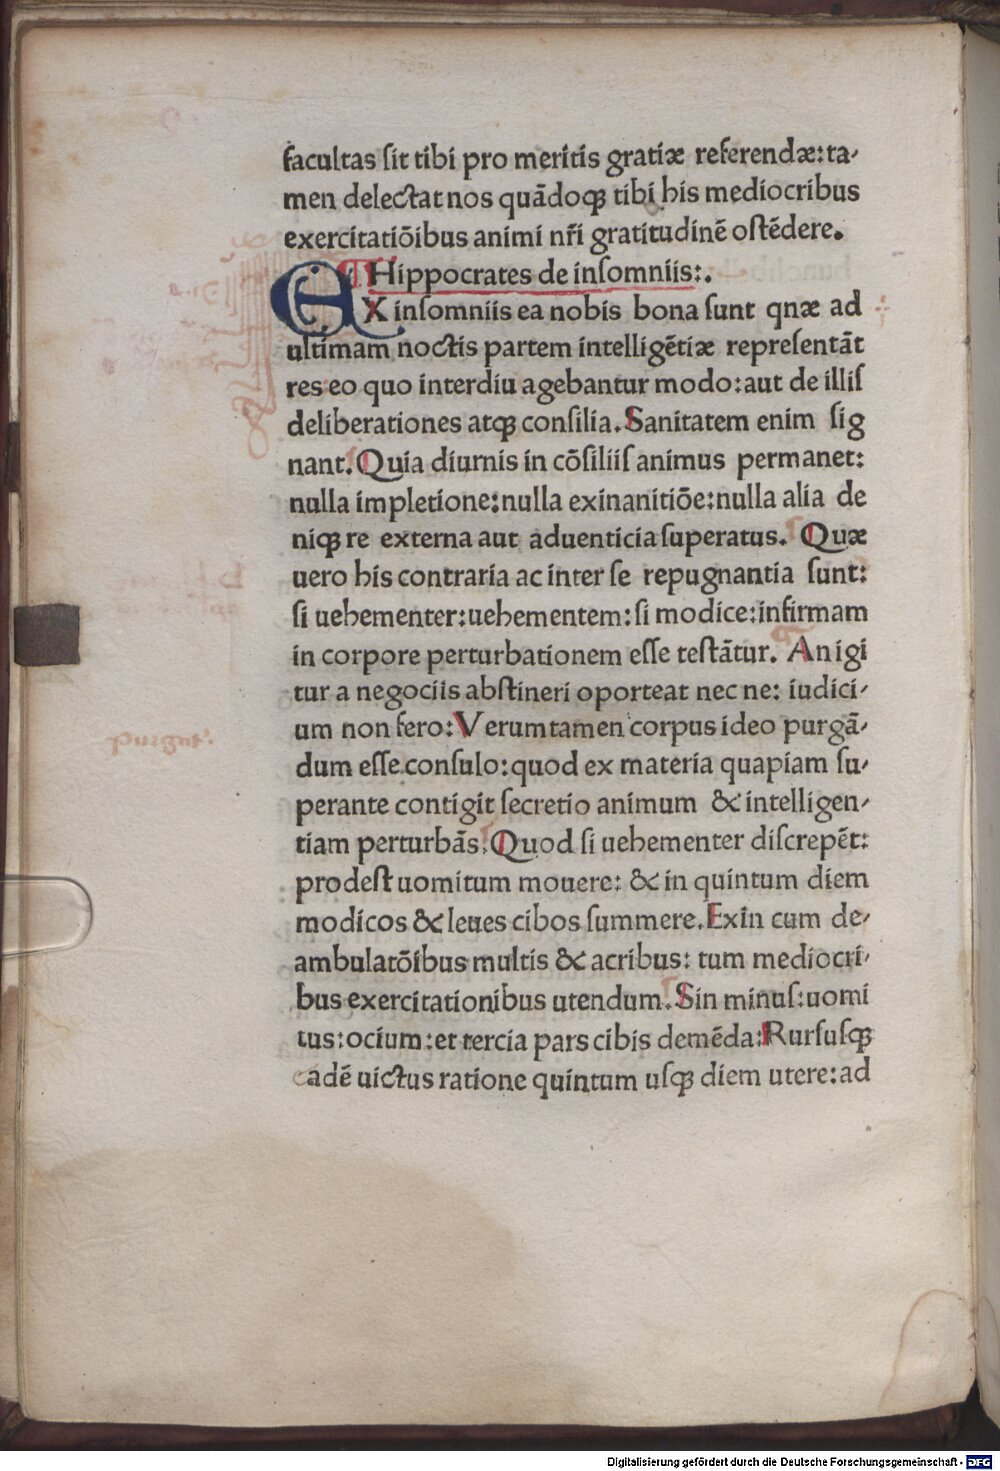 facultas ſit tibi pro meritis gratiæ referendæ: ta-
men delectat nos quādoqꝫ tibi his mediocribus
exercitatiōibus animi nr̄i gratitudinē oſtēdere.
Hippocrates de inſomniis:.
EX inſomniis ea nobis bona ſunt qnæ ad
ultimam noctis partem intelligētiæ repreſentāt
res eo quo interdiu agebantur modo: aut de illiſ
deliberationes atqꝫ conſilia. Sanitatem enim ſig
nant. Quia diurnis in cōſiliiſ animus permanet:
nulla impletione: nulla exinanitiōe: nulla alia de
niqꝫ re externa aut aduenticia ſuperatus. Quæ
uero his contraria ac inter ſe repugnantia ſunt:
ſi uehementer: uehementem: ſi modice: infirmam
in corpore perturbationem eſſe teſtātur. An igi
tur a negociis abſtineri oporteat nec ne: iudici-
um non fero: Verumtamen corpus ideo purgā-
dum eſſe conſulo: quod ex materia quapiam ſu-
perante contigit ſecretio animum & intelligen-
tiam perturbās. Quod ſi uehementer diſcrepēt:
prodeſt uomitum mouere: & in quintum diem
modicos & leues cibos ſummere. Exin cum de-
ambulatōibus multis & acribus: tum mediocri-
bus exercitationibus utendum. Sin minuſ: uomi
tus: ocium: et tercia pars cibis demēda: Rurſuſqꝫ
eadē uictus ratione quintum uſqꝫ diem utere: ad
Digitalisierung gefördert durch die Deutsche Forschungsgemeinschaft - DFG